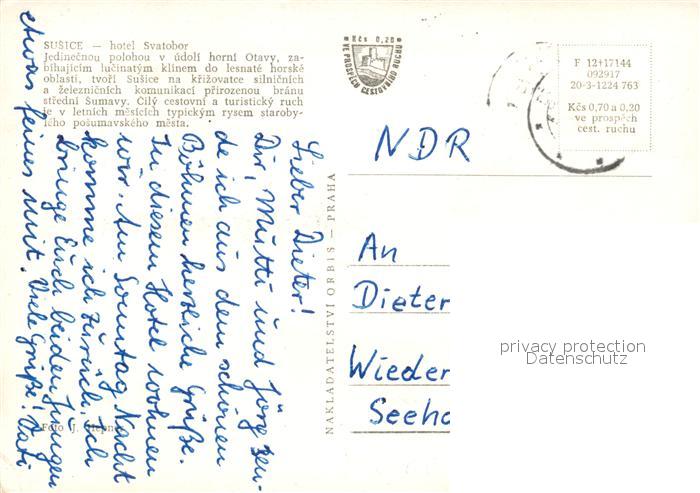 SUŠICE — hotel Svatobor
Jedinečnou polohou v údolí horní Otavy, za-
bíhajícím lučinatým klínem do lesnaté horské
oblasti, tvoří Sušice na křižovatce silničních
a železničních komunikací přirozenou bránu
střední Šumavy. Čilý cestovní a turistický ruch
je v letních měsících typickým rysem staroby-
lého pošumavského města.
Kčs 0,20
VE PROSPĚCH CESTOVNÍHO RUCHU
F 12+17144
092917
20-3-1224 763
Kčs 0,70 a 0,20
ve prospěch
cest. ruchu
Lieber Dieter!
Dir, Mutti und Jörg sen-
de ich aus dem schönen
Böhmen herzliche Grüße.
In diesem Hotel wohnen
wir. Am Sonntag Nacht
komme ich zurück. Ich
bringe Euch beiden Jungen
etwas feines mit. Viele Grüße! Vati
Foto J.
NAKLADATELSTVÍ ORBIS — PRAHA
NDR
An
Dieter
Wieder
Seeho
privacy protection
Datenschutz